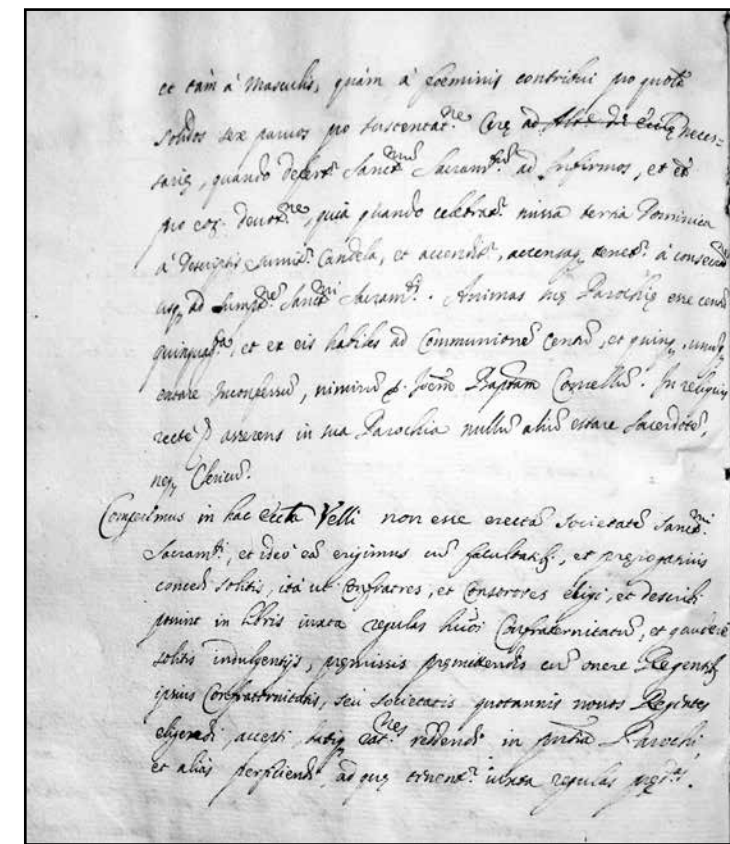 et tàm à Masculis, quàm à foeminis contribui pro quota
solidos sex parvos pro sustentat.ne Cerę ad neces=
sarię, quando defert.r Sanct.mũ Sacram.tũ ad Infirmos, et
pro eoꝝ devot.ne, quia quando celebrat.r missa tertia Dominica
à Descriptis sumit.r Candela, et accendit.r, accensaq. tenet.r à consecrat.ne
usq. ad sumpt.ne Sanct.mi Sacram.ti. Animas suę Parochię esse centũ
quinquag.ta, et ex eis habiles ad Communionẽ Centũ, et quinq., unũq.
extare Inconfessũ, nimirũ Joẽm Baptam Comellũ. In reliquis
rectè asserens in sua Parochia nullũ aliũ extare Sacerdotẽ,
neq. Clericũ.
Comperimus in hac Eccta Velli non esse erectã Societatẽ Sanct.mi
Sacram.ti, et ideò eã erigimus cũ facultatib., et prerogativis
concedi solitis, ità ut Confratres, et Consorores eligi, et describi
possint in Libris iuxta regulas huõi Confraternitatũ, et gaudere
solitis indulgentijs, pręmissis pręmittendis cũ onere Regentib.
ipsius Confraternitatis, seu Societatis quotannis novos Regentes
eligendi, accepti datiq. rat.nes reddendi in pntia Parochi,
et alias perficiendi, ad quę tenent.r iuxta regulas pręd.tas.